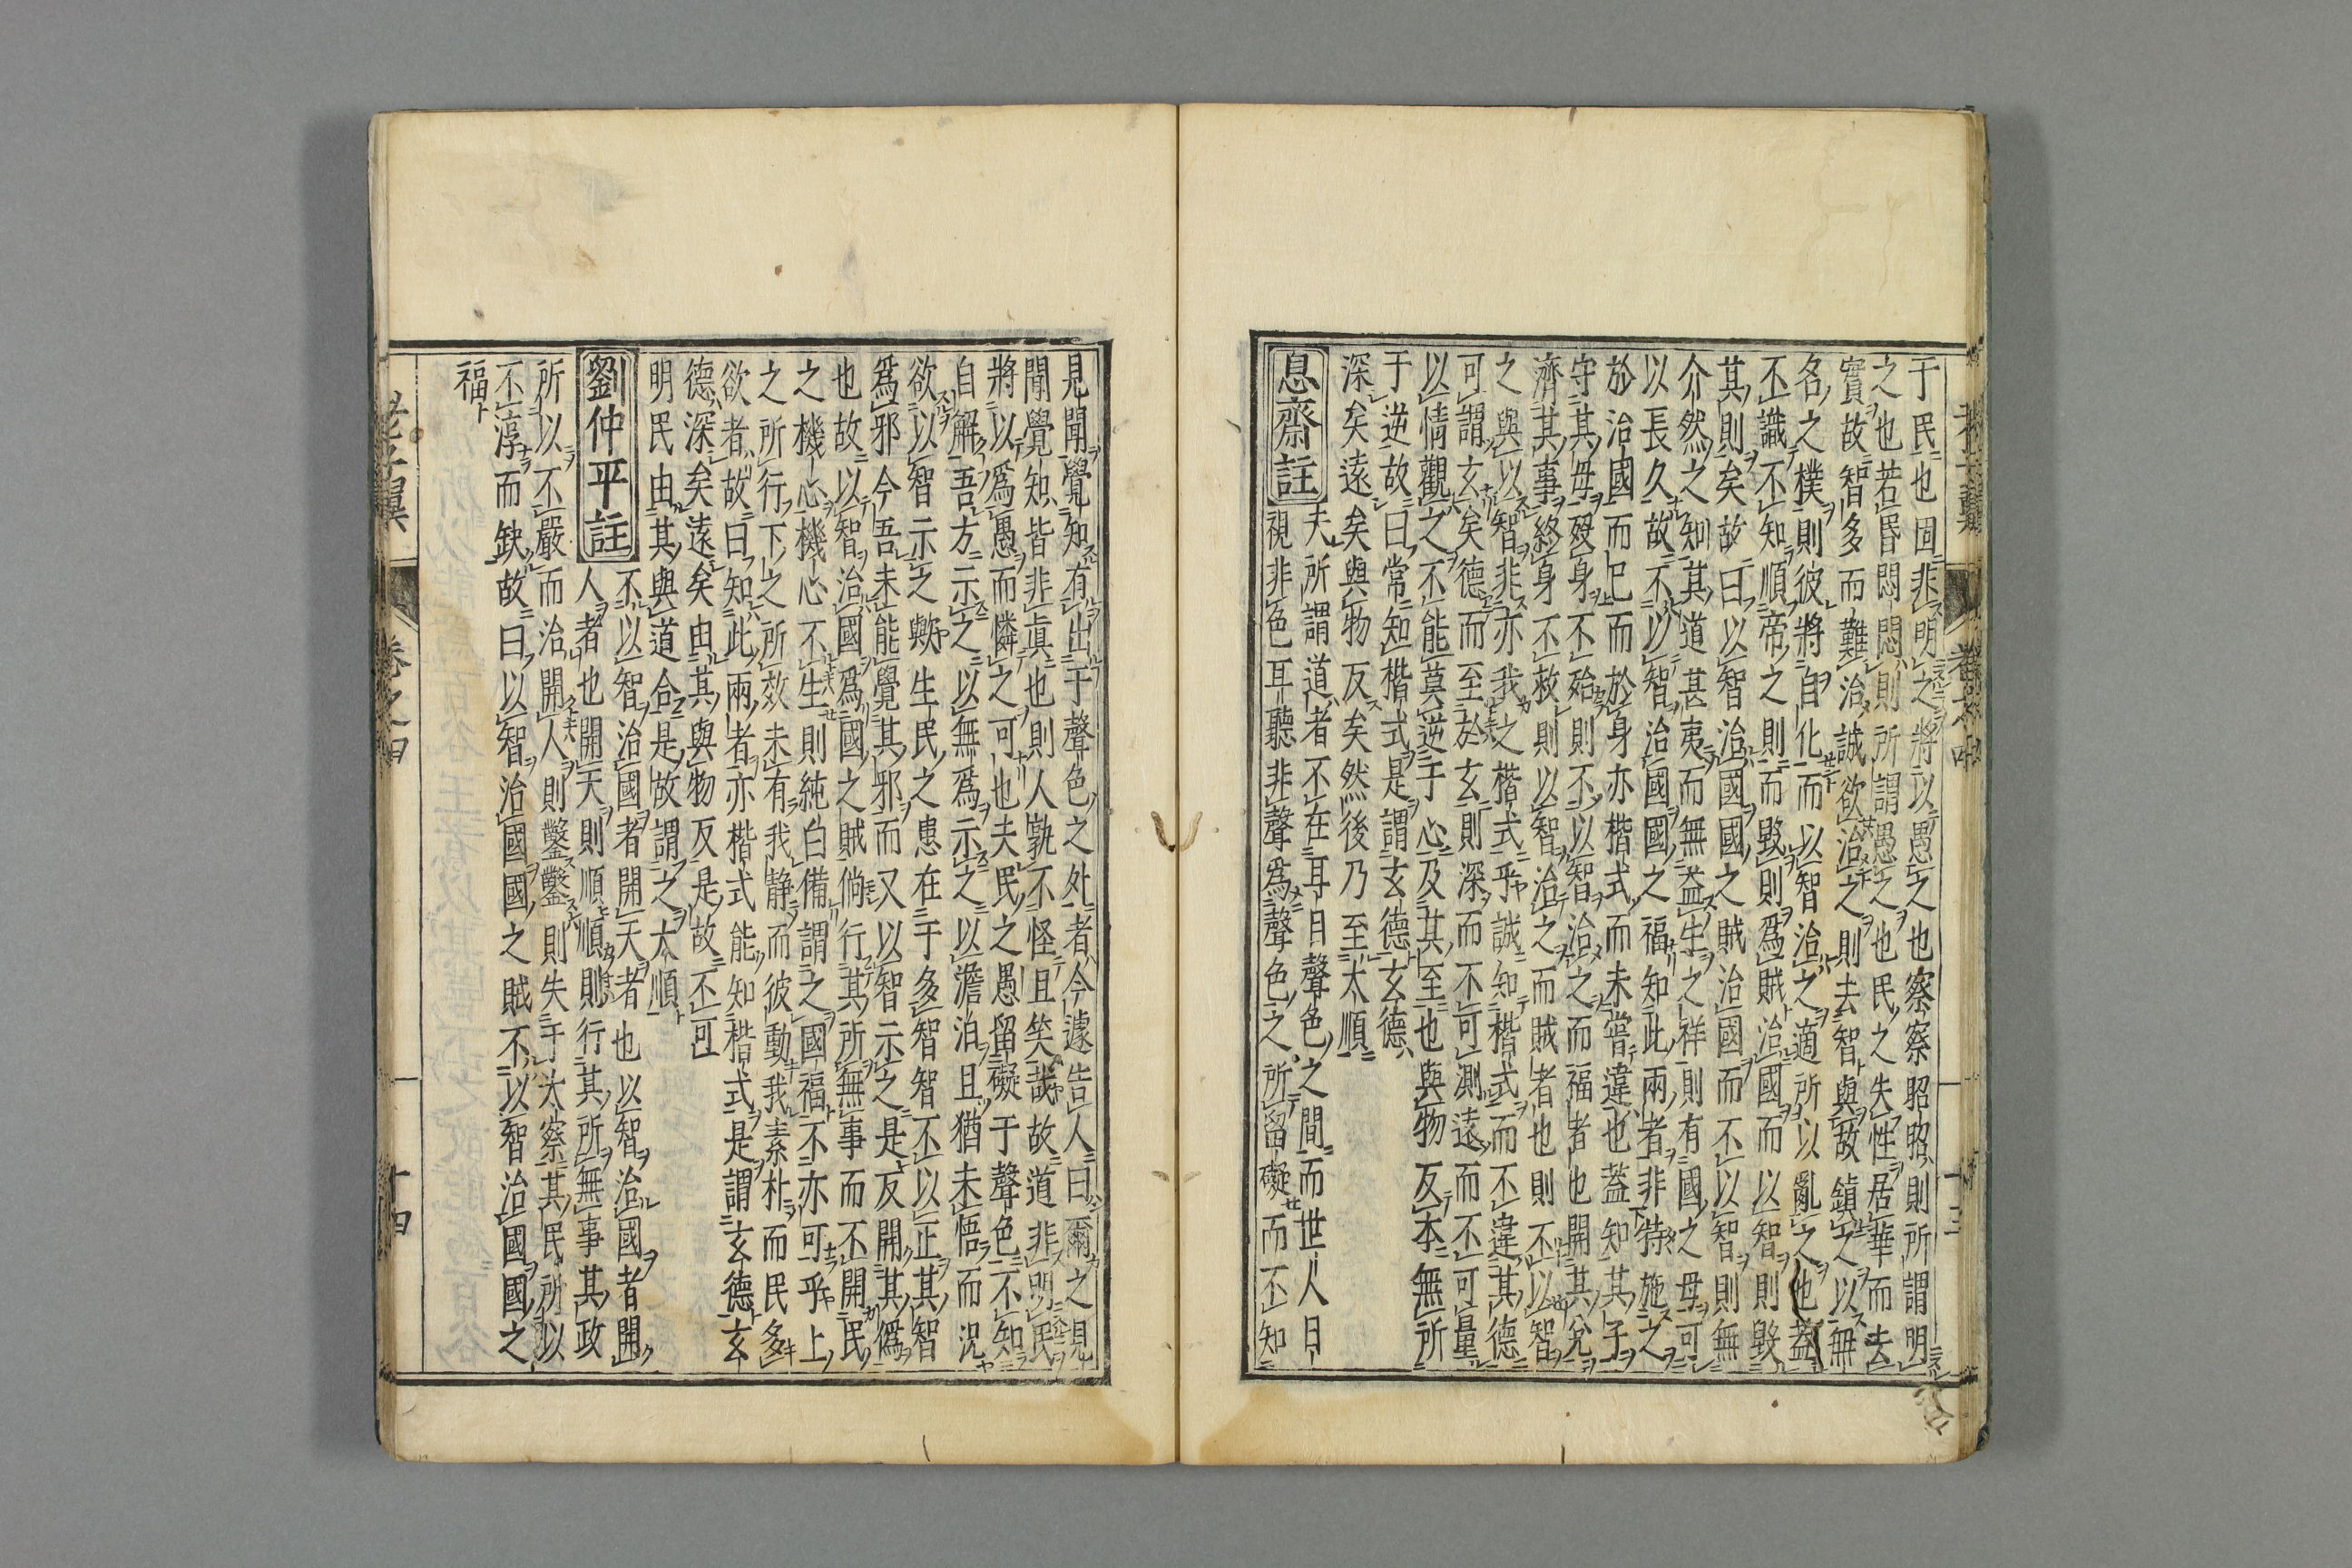 于民也固非明之將以愚之也察察昭昭則所謂明
之也若昏悶悶則所謂愚之也民之失性居華而去
實故智多而難治誠欲治之則去智與故鎮之以無
名之樸則彼將自化而以智治之適所以亂之也蓋
不識不知順帝之則而毀則爲賊治國而以智則毀
其則矣故曰以智治國國之賊治國而不以智則無
介然之知其道甚夷而無益生之祥則有國之母可
以長久故不以智治國國之福知此兩者非特施之
於治國而已而於身亦楷式而未嘗違也蓋知其子
守其母殁身不殆則不以智治之而福者也開其兌
濟其事終身不救則以智治之而賊者也則不以智
之與以智非亦我之楷式乎誠知楷式而不違其德
可謂玄矣德而至於玄則深而不可測遠而不可量
以情觀之不能莫逆于心及其至也與物反本無所
于逆故曰常知楷式是謂玄德玄德
深矣遠矣與物反矣然後乃至太順
息齋註
夫所謂道者不在耳目聲色之間而世人目
視非色耳聽非聲爲聲色之所留礙而不知
見聞覺知有出于聲色之外者今遽告人曰爾之見
聞覺知皆非眞也則人孰不怪且笑哉故道非明民
將以爲愚而憐之可也夫民之愚留礙于聲色不知
自解吾方示之以無爲示之以澹泊且猶未悟而況
欲以智示之歟生民之患在于多智智不以正其智
爲邪今吾未能覺其邪而又以智示之是反開其僞
也故以智治國爲國之賊倘行其所無事而不開民
之機心機心不生則純白備謂之國福不亦可乎上
之所行下之所效未有我静而彼動我素朴而民多
欲者故曰知此兩者亦楷式能知楷式是謂玄德玄
德深矣遠矣由其與物反是故不可
明民由其與道合是故謂之大順
劉仲平註
不以智治國者開天者也以智治國者開
人者也開天則順順則行其所無事其政
所以不嚴而治開人則鑿鑿則失于太察其民所以
不淳而缺故曰以智治國國之賊不以智治國國之
福
老子翼
卷之四
十四